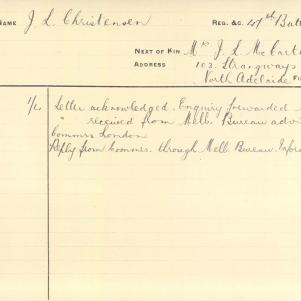 NAME J L Christensen REG. &C. 47th Batt
NEXT OF KIN Mrs J. L. McCart
ADDRESS 103. Strangways
North Adelaide
1/4 Letter acknowledged. Enquiry forwarded
" received from Melb. Bureau advi
Commrs London
Reply from Commrs. through Melb Bureau. Infor